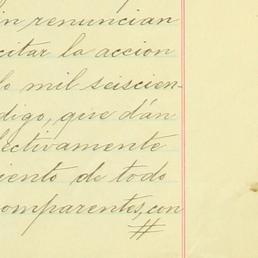 in renuncian
citar la accion
lo mil seiscien-
digo, que dán
lectivamente
iento de todo
comparentes, con